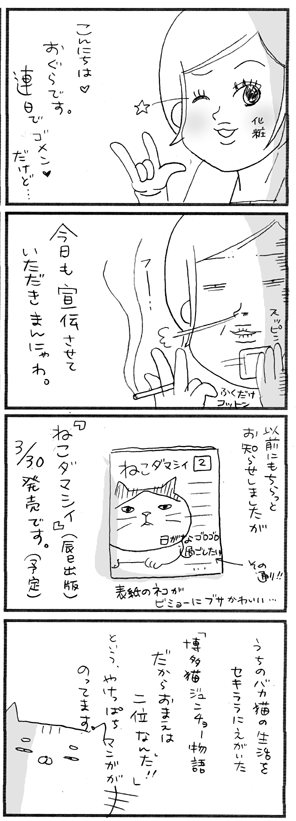 こんにちは♡
おぐらです。
連日でゴメン♡
だけど…
化粧
今日も宣伝させて
いただきまんにゃわ。
フーー…
スッピン
ふくだけ
コットン
以前にもちらっと
お知らせしましたが
ねこダマシイ 2
日がなゴロゴロ
過ごしたい
その通り!!
表紙のネコが
ビミョーにブサかわいい…
『ねこダマシイ』(辰巳出版)
3/30発売です。(予定)
うちのバカ猫の生活を
セキララにえがいた
「博多猫ジュンチョー物語
だからおまえは
二位なんだ!!」
という、やけっぱち
マンガが
のってます。